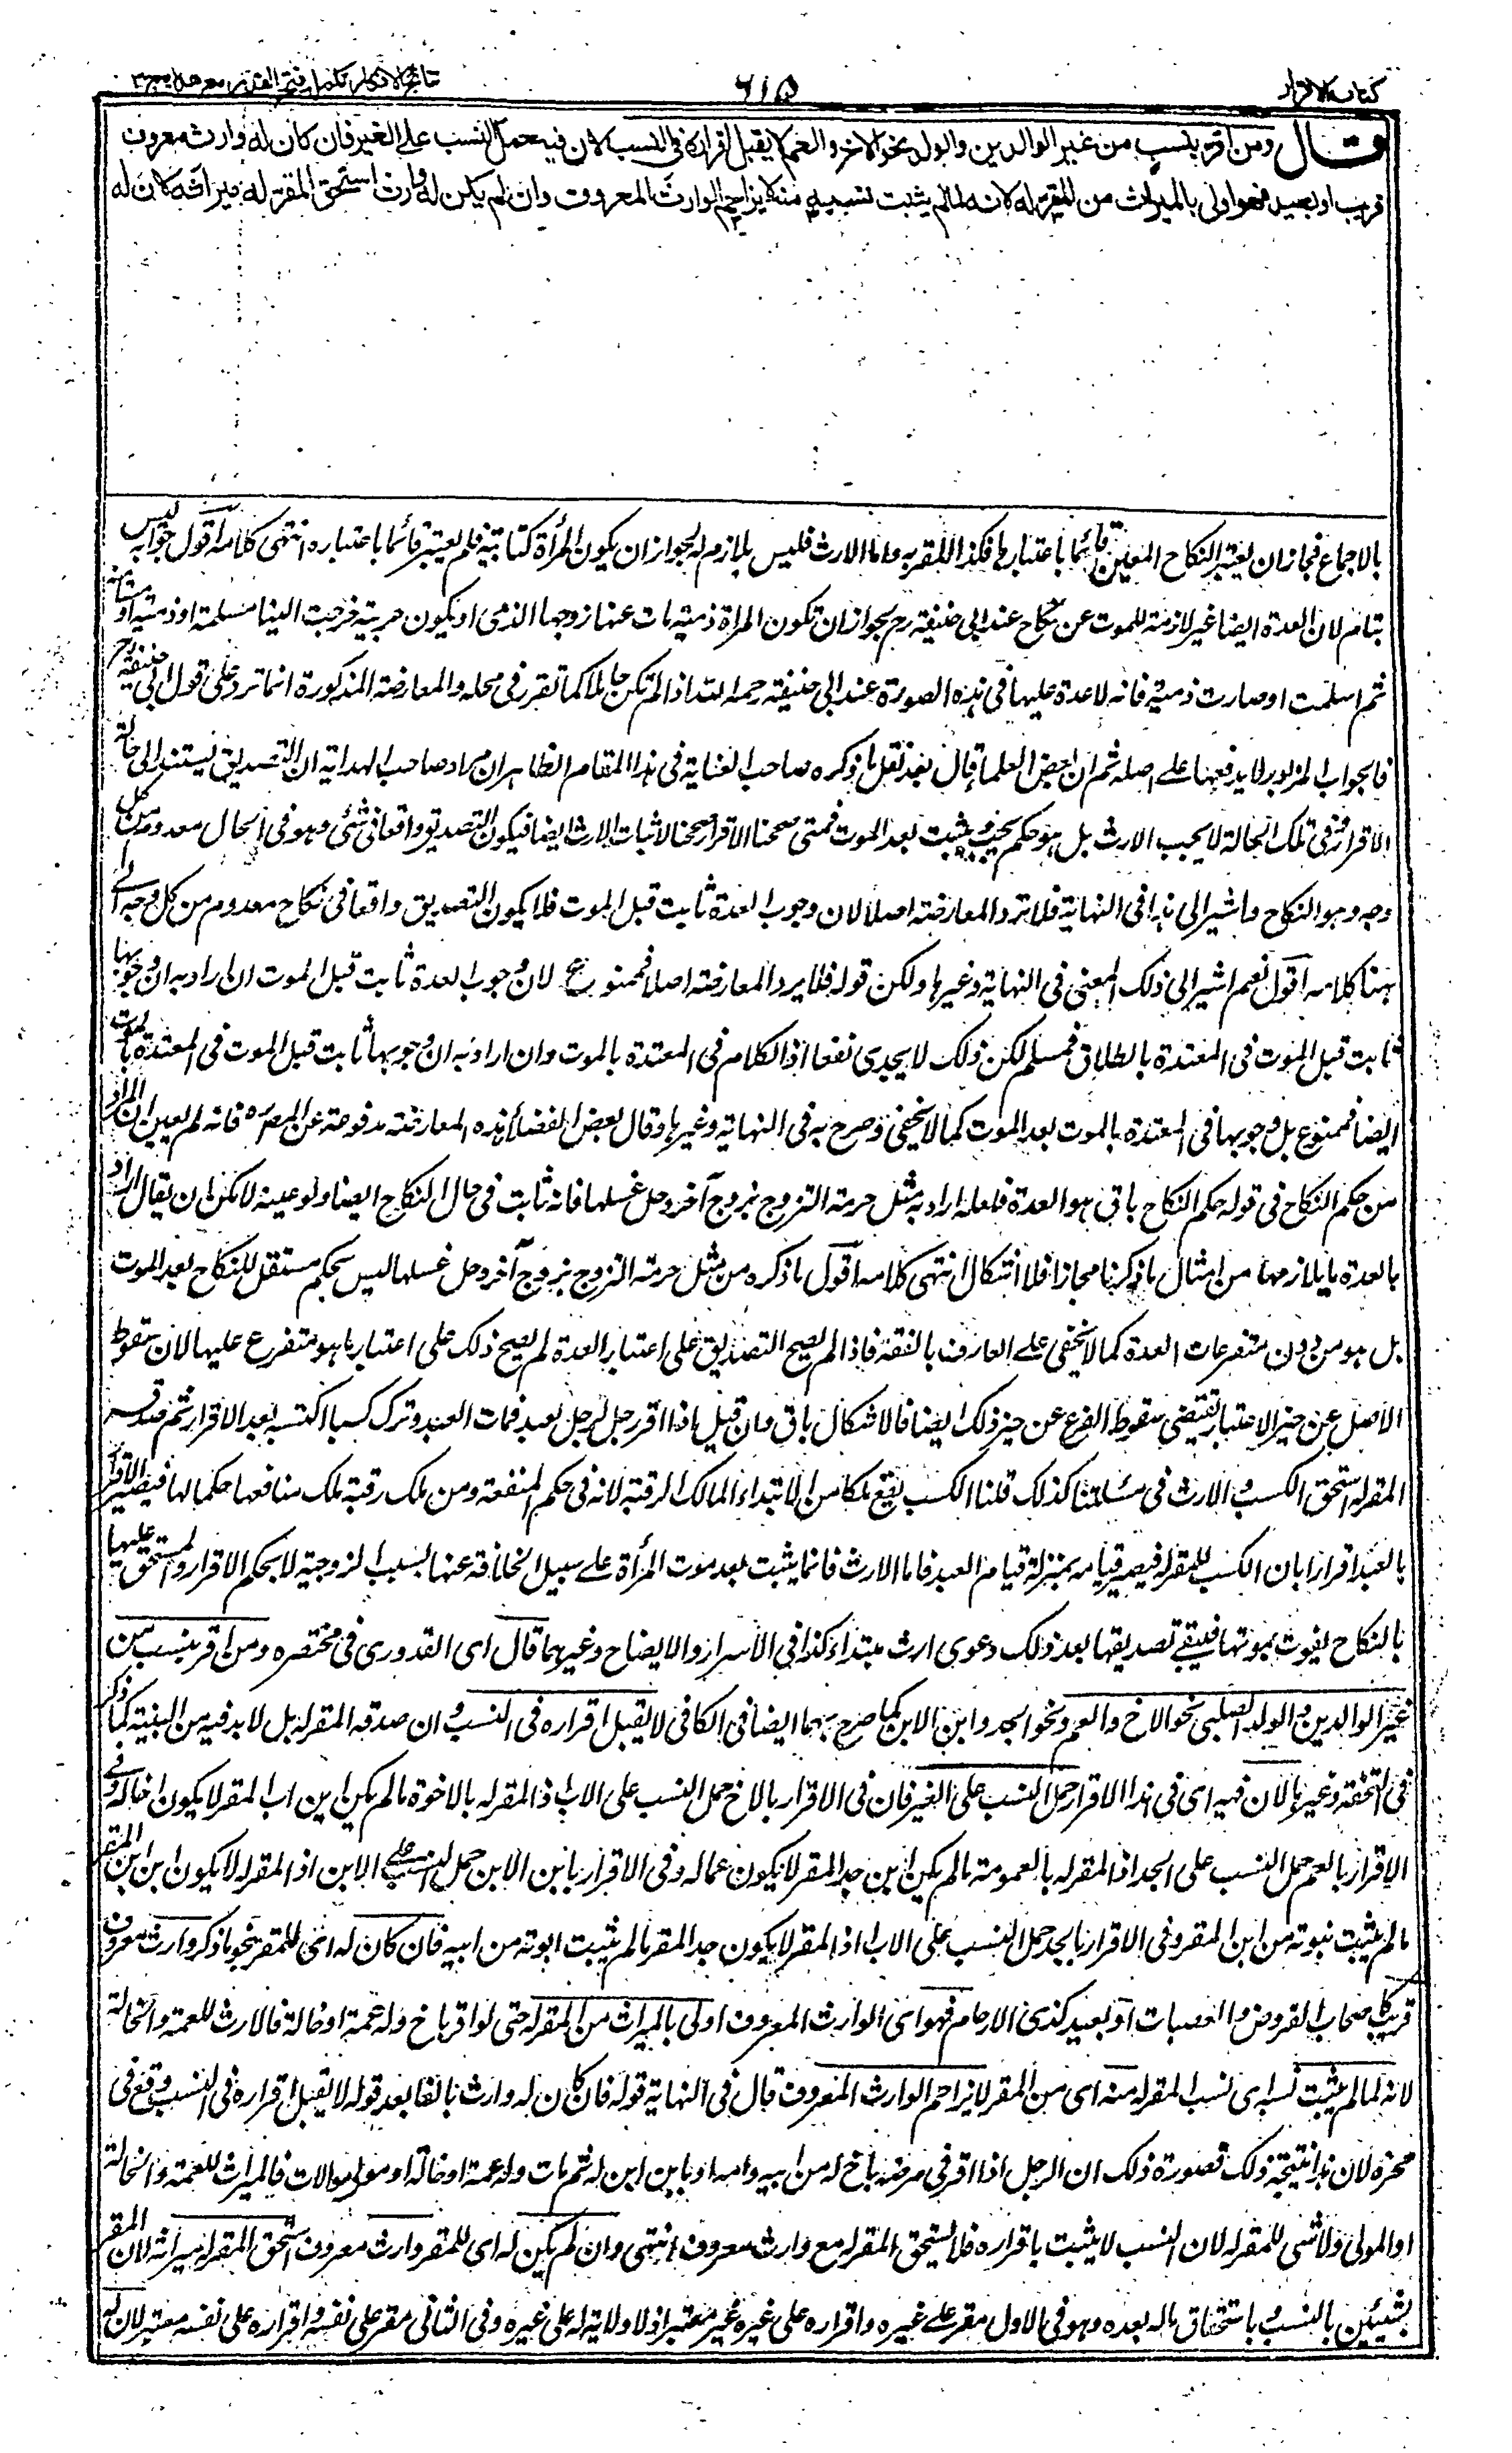 كتاب الاقرار
٦١٥
نتائج الافكار تكملة فتح القدير مع هداية ج ٣
قال ومن اقر بنسب من غير الوالدين والولد نحو الاخ والعم لا يقبل اقراره فى النسب لان فيه حمل النسب على الغير فان كان له وارث معروف
قريب او بعيد فهو اولى بالميراث من المقر له لانه لما لم يثبت نسبه منه لا يزاحم الوارث المعروف وان لم يكن له وارث استحق المقر له ميراثه لان له
بالاجماع فجاز ان يعتبر النكاح المعين قائما باعتبارها فكذا المقر به واما الارث فليس بلازم له لجواز ان يكون المرأة كتابية فلم يعتبر قائما باعتباره انتهى كلامه اقول جوابه ليس
بتام لان العدة ايضا غير لازمة للموت عن نكاح عند ابى حنيفة رح بجواز ان تكون المرأة ذمية مات عنها زوجها الذمى او يكون حربية خرجت الينا مسلمة او ذمية او مستامنة
ثم اسلمت او صارت ذمية فانه لا عدة عليها فى هذه الصورة عند ابى حنيفة رحمه الله اذا لم تكن حاملا كما تقرر فى محله والمعارضة المذكورة انما ترد على قول ابى حنيفة رح
فالجواب المزبور لا يدفعها على اصله ثم ان بعض العلماء قال بعد نقل ما ذكره صاحب العناية فى هذا المقام الظاهر ان مراد صاحب الهداية ان التصديق يستند الى حالة
الاقرار ففى تلك الحالة لا يجب الارث بل هو حكم يجب ويثبت بعد الموت فمتى صححنا الاقرار صححنا لاثبات الارث ايضا فيكون التصديق واقعا فى شئى وهو فى الحال معدوم من كل
وجه وهو النكاح واشير الى هذا فى النهاية فلا ترد المعارضة اصلا لان وجوب العدة ثابت قبل الموت فلا يكون التصديق واقعا فى نكاح معدوم من كل وجه الى
هنا كلامه اقول نعم اشير الى ذلك المعنى فى النهاية وغيرها ولكن قوله فلا يرد المعارضة اصلا فممنوع لان وجوب العدة ثابت قبل الموت ان اراد به ان وجوبها
ثابت قبل الموت فى المعتدة بالطلاق فمسلم لكن ذلك لا يجدى نفعا اذ الكلام فى المعتدة بالموت وان اراد به ان وجوبها ثابت قبل الموت فى المعتدة بالموت
ايضا فممنوع بل وجوبها فى المعتدة بالموت بعد الموت كما لا يخفى وصرح به فى النهاية وغيرها وقال بعض الفضلاء هذه المعارضة مدفوعة عن المصره فانه لم يعين ان المراد
من حكم النكاح فى قوله حكم النكاح باق هو العدة فلعله اراد به مثل حرمة التزوج بزوج آخر وحل غسلها فانه ثابت فى حال النكاح ايضا ولو عينه لامكن ان يقال اراد
بالعدة ما يلازمها من امثال ما ذكرنا مجازا فلا اشكال انتهى كلامه اقول ما ذكره من مثل حرمة التزوج بزوج آخر وحل غسلها ليس بحكم مستقل للنكاح بعد الموت
بل هو من دون متفرعات العدة كما لا يخفى على العارف بالفقه فاذا لم يصح التصديق على اعتبار العدة لم يصح ذلك على اعتبار ما هو متفرع عليها لان سقوط
الاصل عن حيز الاعتبار يقتضى سقوط الفرع عن حيز ذلك ايضا فالاشكال باق وان قيل ماذا اقر رجل لرجل بعبد فمات العبد وترك كسبا اكتسبه بعد الاقرار ثم صدقه
المقر له استحق الكسب والارث فى مسئلتنا كذلك قلنا الكسب يقع ملكا من الابتداء لمالك الرقبة لانه فى حكم المنفعة ومن ملك رقبة ملك منافعها حكما لها فيصير الاقرار
بالعبد اقرارا بان الكسب للمقر له فيصير قيامه بمنزلة قيام العبد فاما الارث فانما يثبت بعد موت المرأة على سبيل الخلافة عنها بسبب الزوجية لا بحكم الاقرار والمستحق عليها
بالنكاح يفوت بموتها فيبقى تصديقها بعد ذلك دعوى ارث مبتداء كذا فى الاسرار والايضاح وغيرهما قال اى القدورى فى مختصره ومن اقر بنسب من
غير الوالدين والولد الصلبى نحو الاخ والعم ونحو الجد وابن الابن كما صرح بهما ايضا فى الكافى لا يقبل اقراره فى النسب وان صدقه المقر له بل لا بد فيه من البينة كما ذكر
فى التحفة وغيرها لان فيه اى فى هذا الاقرار حمل النسب على الغير فان فى الاقرار بالاخ حمل النسب على الاب اذ المقر له بالاخوة ما لم يكن ابن اب المقر لا يكون اخا له وفى
الاقرار بالعم حمل النسب على الجد اذ المقر له بالعمومة ما لم يكن ابن جد المقر لا يكون عما له وفى الاقرار بابن الابن حمل النسب على الابن اذ المقر له لا يكون ابن ابن المقر
ما لم يثبت نبوته من ابن المقر وفى الاقرار بالجد حمل النسب على الاب اذ المقر له لا يكون جد المقر ما لم يثبت ابوته من ابيه فان كان له اى للمقر بنحو ما ذكر وارث معروف
قريب كاصحاب الفروض والعصبات او بعيد كذى الارحام فهو اى الوارث المعروف اولى بالميراث من المقر له حتى لو اقر باخ وله عمة او خالة فالارث للعمة والخالة
لانه لما لم يثبت نسبه اى نسب المقر له منه اى من المقر لا يزاحم الوارث المعروف قال فى النهاية قوله فان كان له وارث بالفا بعد قوله لا يقبل اقراره فى النسب وقع فى
محزه لان هذا نتيجة ذلك فصورة ذلك ان الرجل اذا اقر فى مرضه باخ له من ابيه وامه او بابن ابن له ثم مات وله عمة او خالة او مولى موالات فالميراث للعمة والخالة
او المولى ولا شئى للمقر له لان النسب لا يثبت باقراره فلا يستحق المقر له مع وارث معروف انتهى وان لم يكن له اى للمقر وارث معروف استحق المقر له ميراثه لان المقر
بشيئين بالنسب وباستحقاق ماله بعده وهو فى الاول مقر على غيره واقراره على غيره غير معتبر اذ لا ولاية له على غيره وفى الثانى مقر على نفسه واقراره على نفسه معتبر لان له